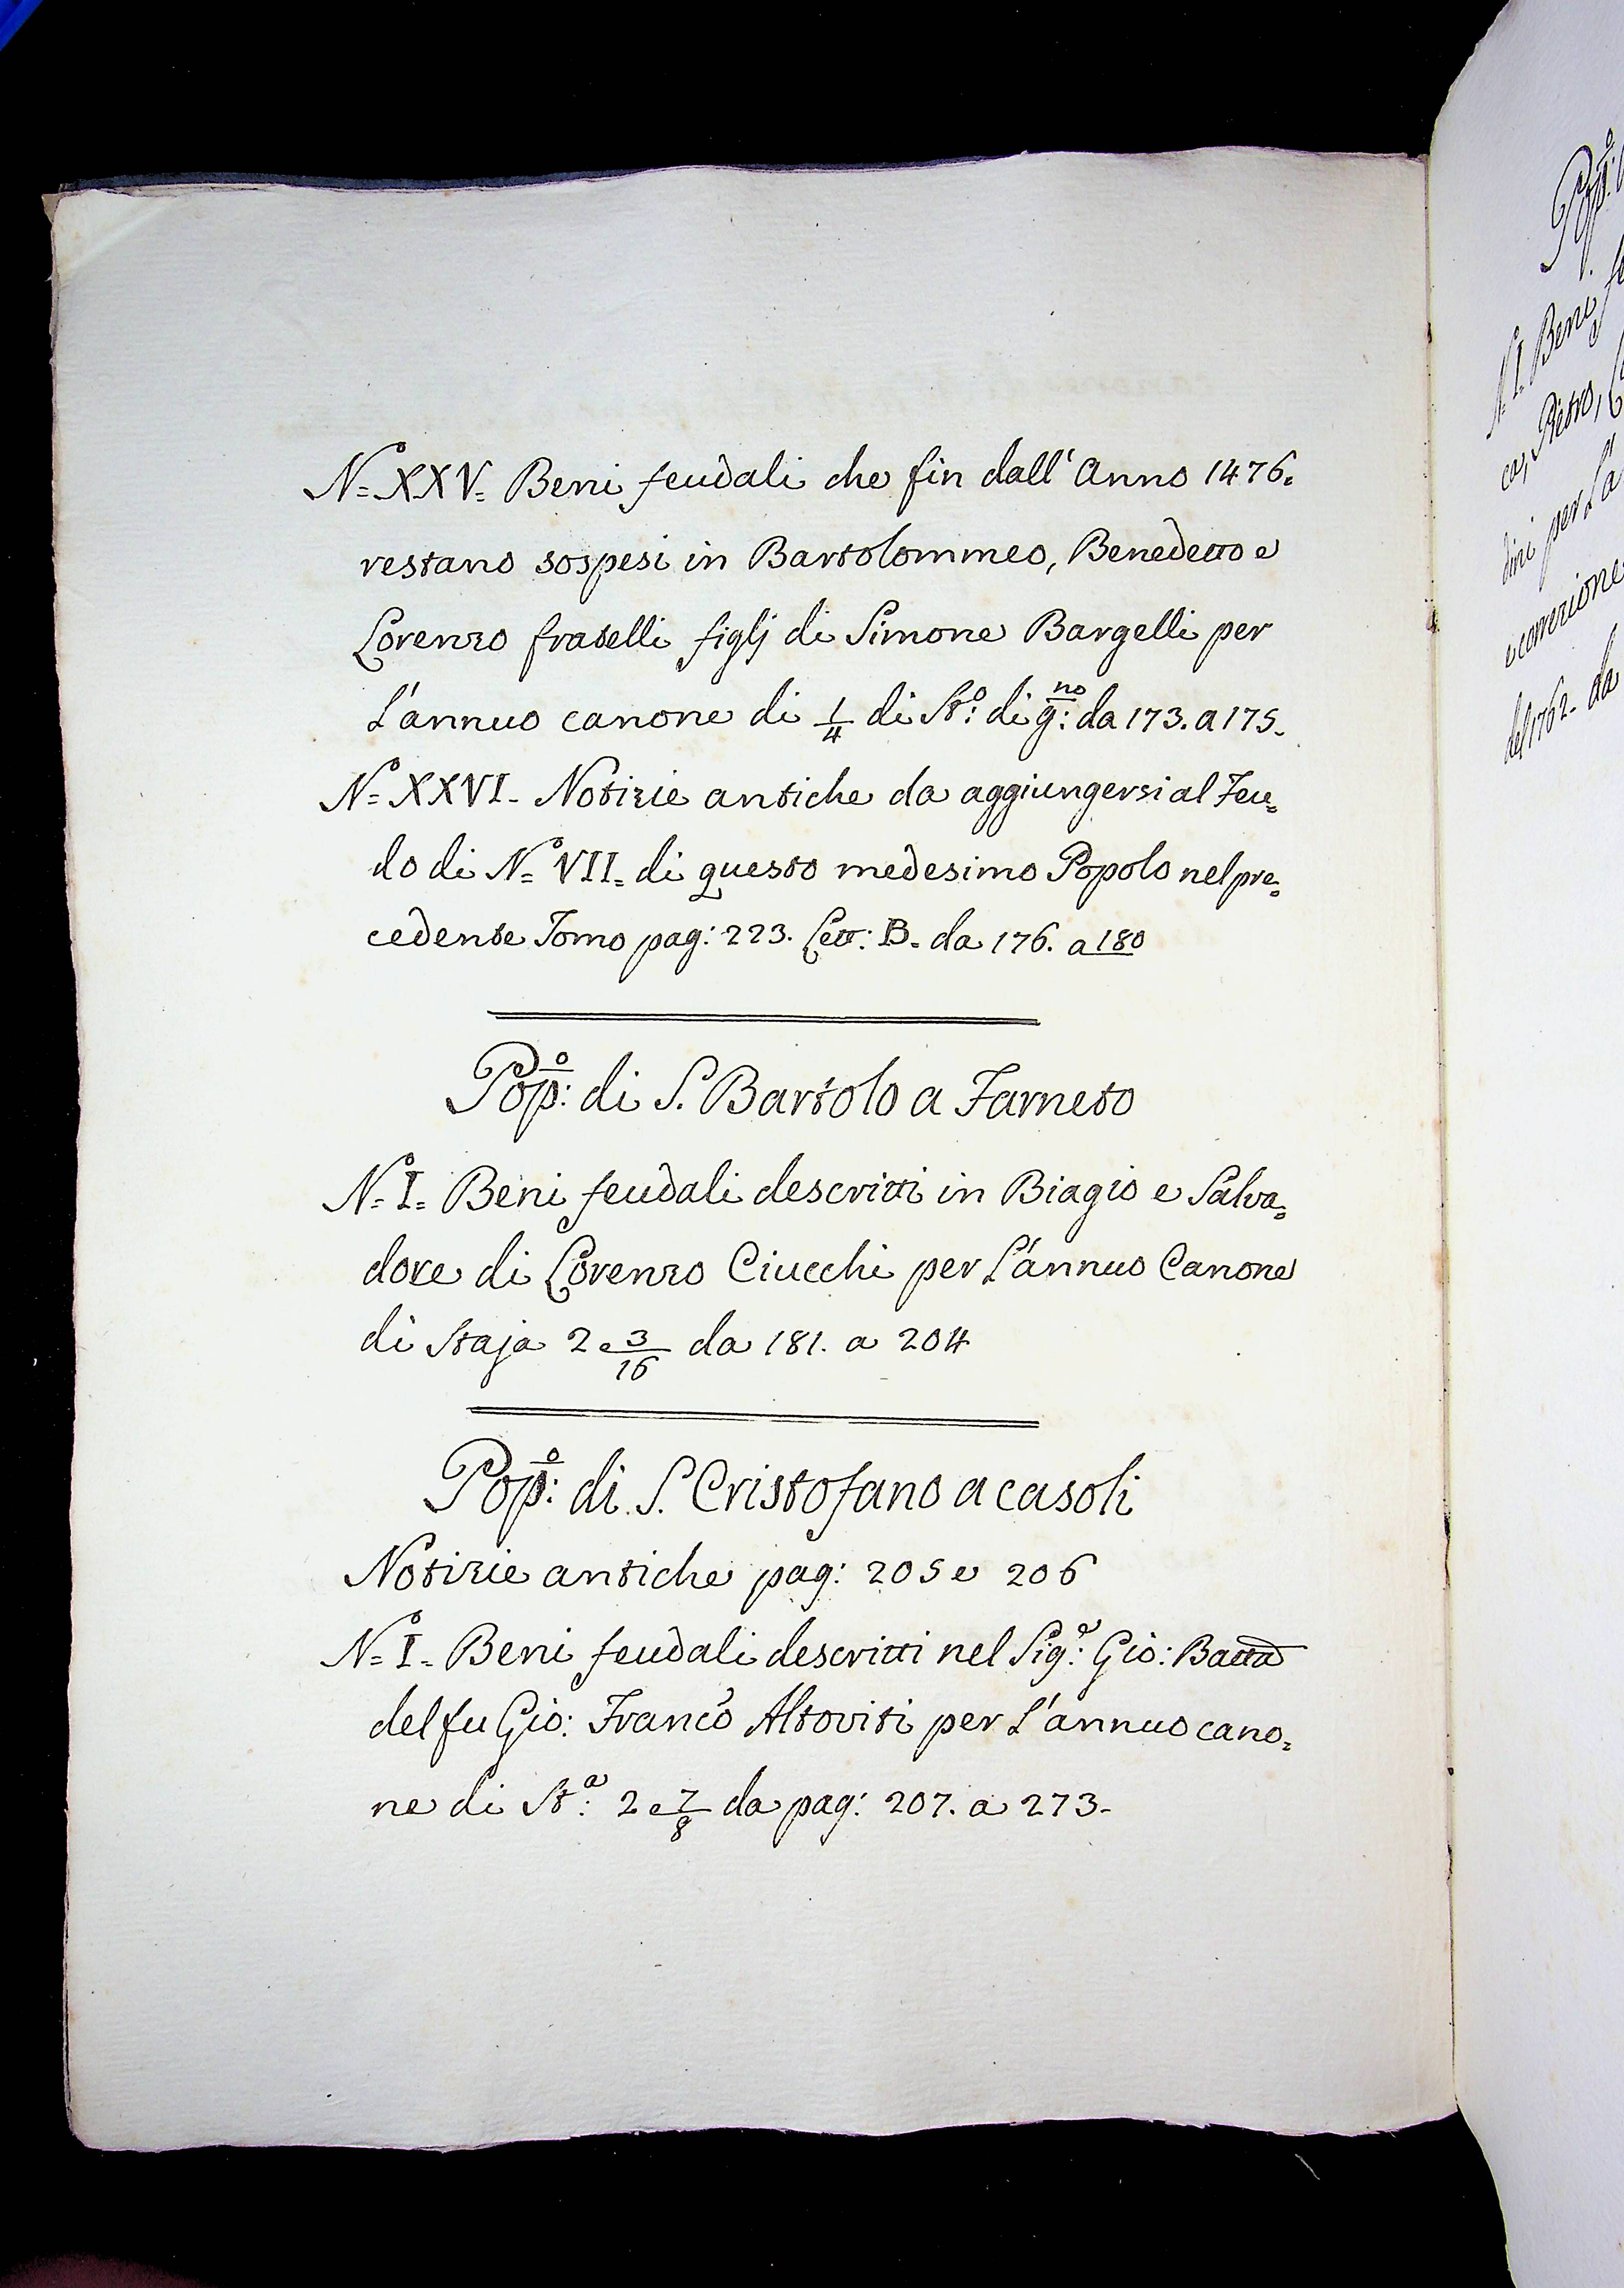 N.º XXV. Beni feudali che fin dall' Anno 1476.
restano sospesi in Bartolommeo, Benedetto e
Lorenzo fratelli figlj di Simone Bargelli per
L'annuo canone di 1/4 di St:º di g:no da 173. a 175.
N.º XXVI. Notizie antiche da aggiungersi al Feu=
do di N.º VII. di questo medesimo Popolo nel pre=
cedente Tomo pag: 223. Lett: B. da 176. a 180
Pop:º di S. Bartolo a Farneto
N.º I. Beni feudali descritti in Biagio e Salva=
dore di Lorenzo Ciucchi per L'annuo Canone
di Staja 2 e 3/16 da 181. a 204
Pop:º di S. Cristofano a casoli
Notizie antiche pag: 205 e 206
N.º I. Beni feudali descritti nel Sig:e Gio: Batta
del fu Gio: Franco Altoviti per L'annuo cano=
ne di St:a 2 e 7/8 da pag: 207. a 273.
Pop:º
N.º I. Beni
co, Pietro,
dini per La
e correzione
del 1762. da